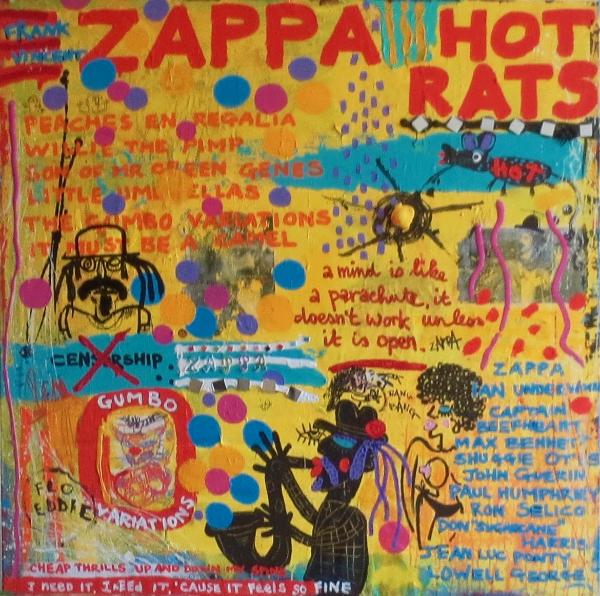 FRANK
VINCENT
ZAPPA HOT
RATS
PEACHES EN REGALIA
WILLIE THE PIMP
SON OF MR GREEN GENES
LITTLE UMBRELLAS
THE GUMBO VARIATIONS
IT MUST BE A CAMEL
HOT
a mind is like
a parachute, it
doesn't work unless
it is open. ZAPPA
CENSORSHIP.
ZAPPA
GUMBO
VARIATIONS
FLO
EDDIE
HANG
HANG
ZAPPA
IAN UNDERWOOD
CAPTAIN
BEEFHEART
MAX BENNETT
SHUGGIE OTIS
JOHN GUERIN
PAUL HUMPHREY
RON SELICO
DON "SUGARCANE"
HARRIS
JEAN LUC PONTY
LOWELL GEORGE
CHEAP THRILLS UP AND DOWN MY SPINE
I NEED IT, I NEEd IT, 'CAUSE IT FEELS SO FINE